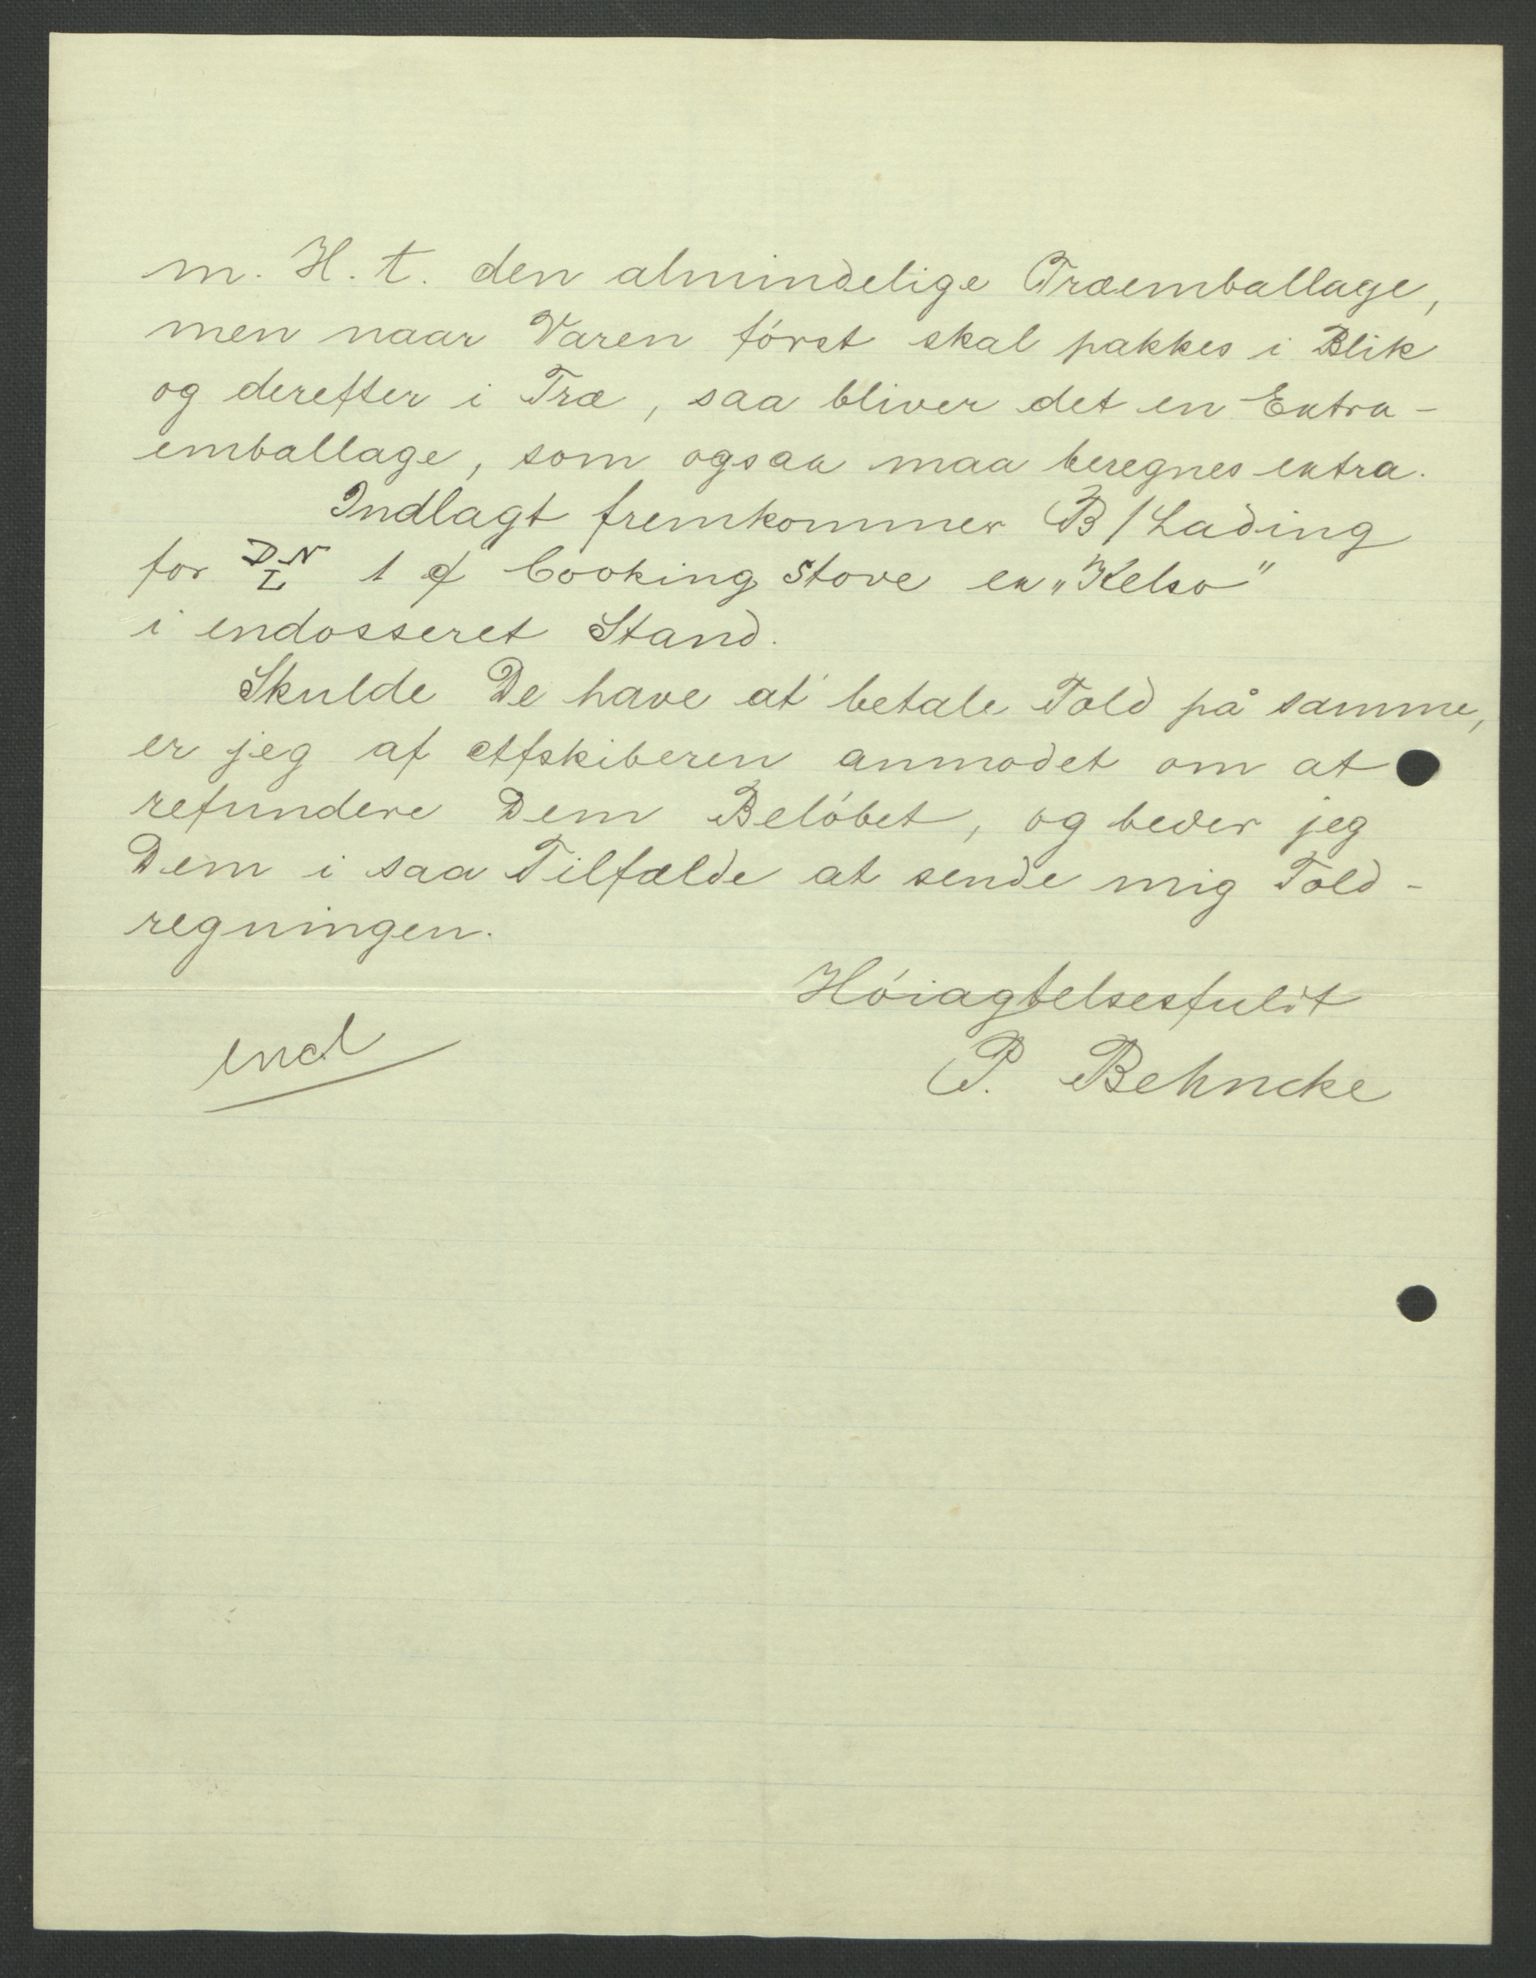 m. H. t. den almindelige Træemballage,
men naar Varen först skal pakkes i Blik
og derefter i Træ, saa bliver det en Extra-
emballage, som ogsaa maa beregnes extra.
Indlagt fremkommer B/Lading
for D N L 1 ȼ Cooking Stove ex „Kelso"
i endosseret Stand.
Skulde De have at betale Told på samme,
er jeg af Afskiberen anmodet om at
refundere Dem Belöbet, og beder jeg
Dem i saa Tilfælde at sende mig Told-
regningen.
Höiagtelsesfuldt
P. Behncke
encl